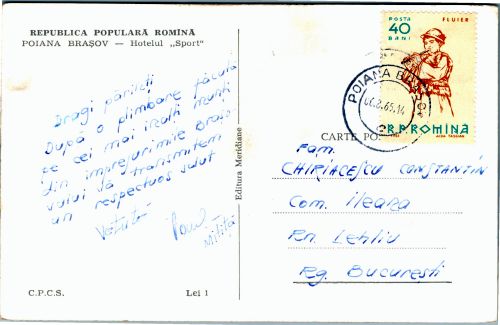 REPUBLICA POPULARĂ ROMÎNĂ
POIANA BRAȘOV — Hotelul „Sport"
Dragi părinți
După o plimbare făcută
pe cei mai înalți munți
din împrejurimile Brașo-
vului vă transmitem
un respectuos salut
Militză
C.P.C.S.
Lei 1
Editura Meridiane
POSTA
40
BANI
FLUIER
R.P.ROMINA
POIANA
CARTE PO
Fam.
CHIRIACESCU CONSTANTIN
Com. Ileana
Rn. Lehliu
Rg. București